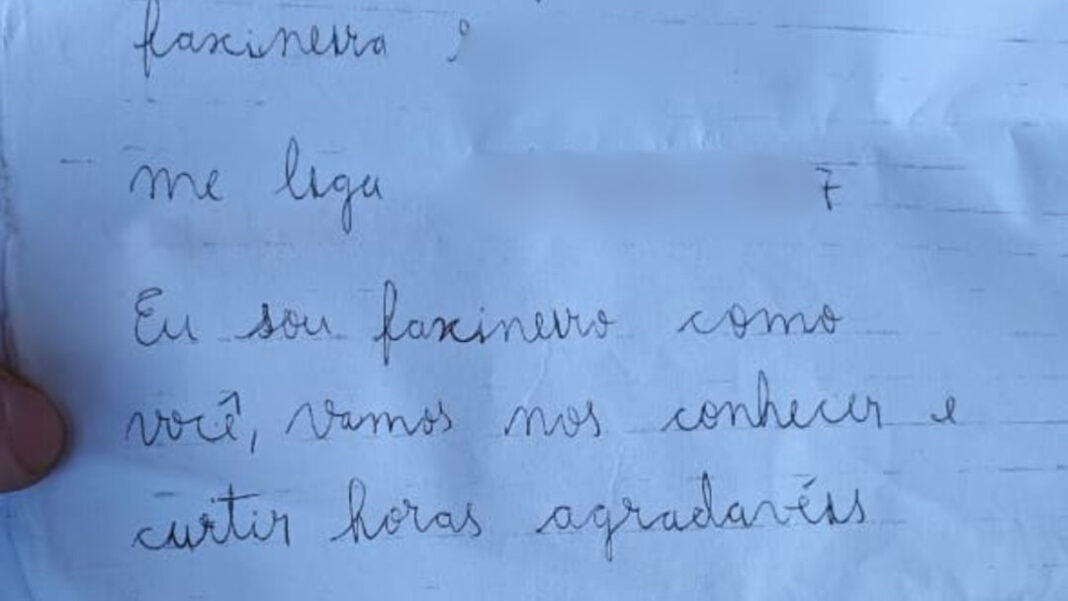 faxineira 9
me liga 7
Eu sou faxineiro como
você, vamos nos conhecer e
curtir horas agradavéis